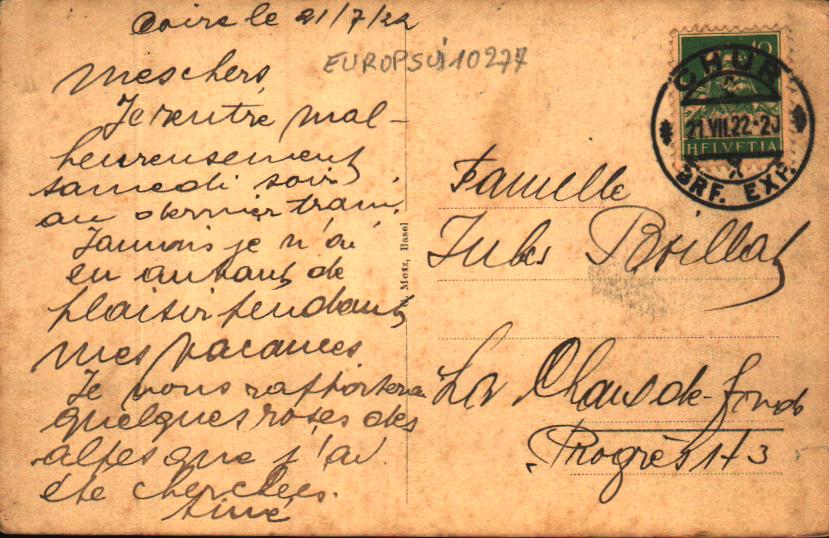 Coire le 21/7/22
EUROPSUI 10277
Mes chers,
Je rentre mal-
heureusement
samedi soir
au dernier train.
Jamais je n'ai
eu autant de
plaisir pendant
mes vacances
Je vous rapporterai
quelques roses des
alpes que j'ai
été cherchées.
Metz, Basel
10
CHUR
21.VII.22-2
HELVETIA
BRF. EXP.
Famille
Jules Boillat
La Chaux-de-fonds
Progrès 113